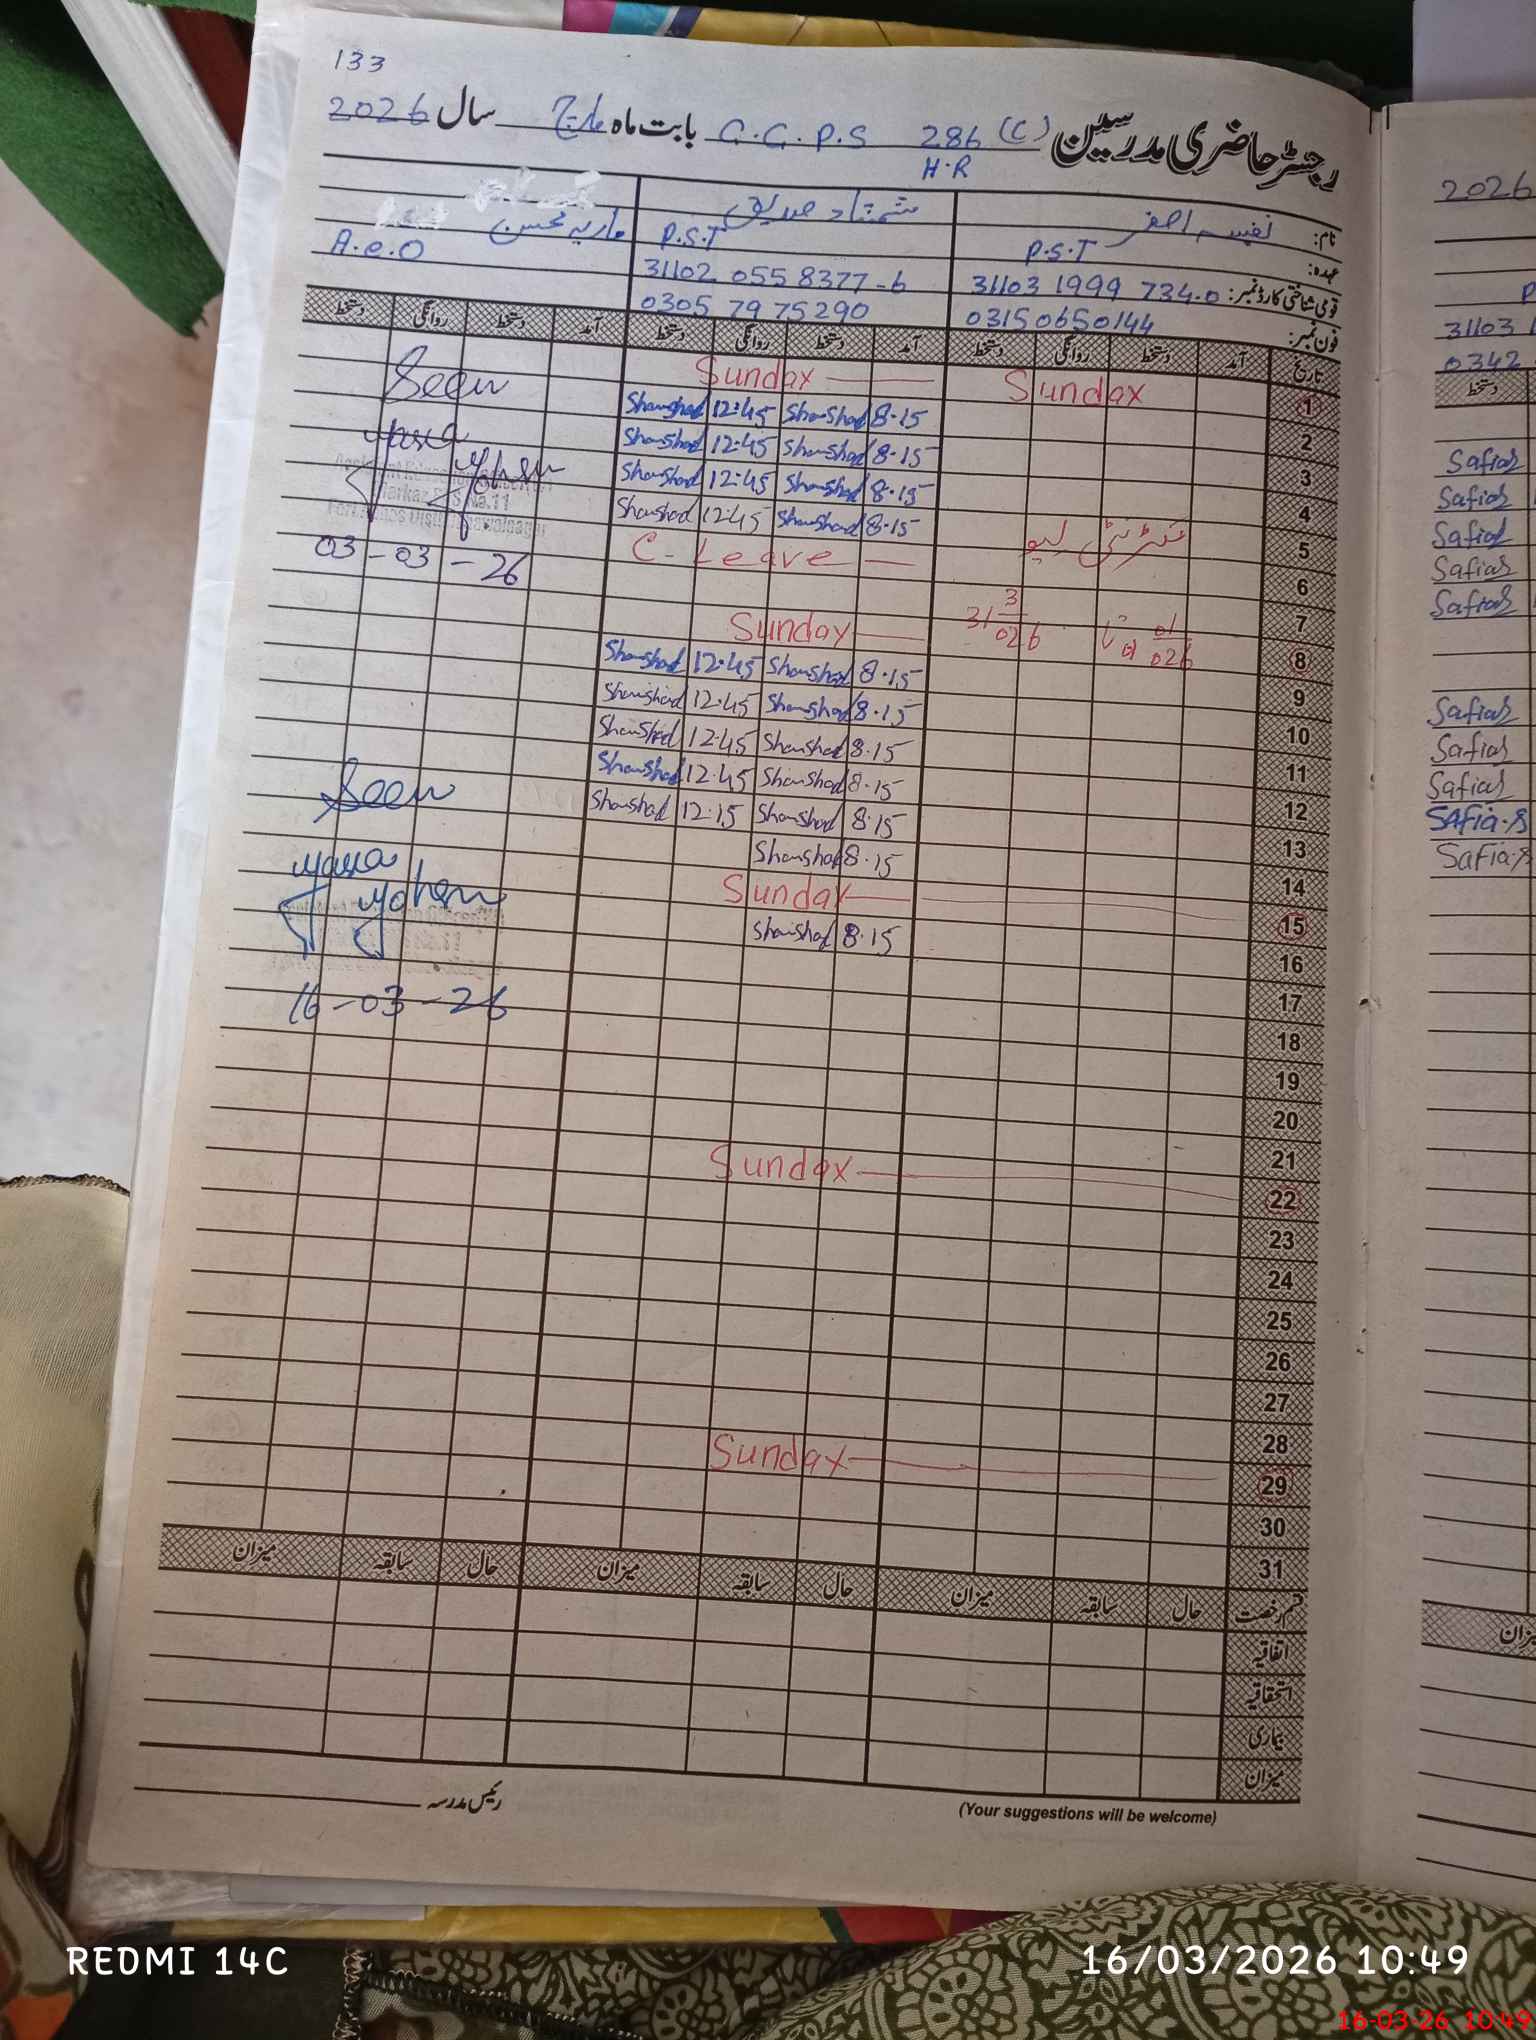 133
رجسٹر حاضری مدرسین G.G.P.S 286 (C) بابت ماہ مارچ سال 2026
H.R
نام: نفیسہ اصغر شمشاد صدیق ماریہ محسن
عہدہ: P.S.T P.S.T A.e.O
قومی شناختی کارڈ نمبر: 31103 1999 734-0 31102 055 8377-6
فون نمبر: 03150650144 0305 79 75290
تاریخ آمد دستخط روانگی دستخط آمد دستخط روانگی دستخط آمد دستخط روانگی دستخط
1 Sunday Sunday
2 8.15 Shamshad 12:45 Shamshad
3 8.15 Shamshad 12:45 Shamshad
4 8.15 Shamshad 12:45 Shamshad
5 8.15 Shamshad 12:45 Shamshad
6 C-Leave
7
8 Sunday
9 8.15 Shamshad 12:45 Shamshad
10 8.15 Shamshad 12:45 Shamshad
11 8.15 Shamshad 12:45 Shamshad
12 8.15 Shamshad 12:45 Shamshad
13 8.15 Shamshad 12:15 Shamshad
14 8.15 Shamshad
15 Sunday
16 8.15 Shamshad
17
18
19
20
21
22 Sunday
23
24
25
26
27
28
29 Sunday
30
31
میٹرنٹی لیو
01/026 تا 31 3/026
Seen
03-03-26
Seen
16-03-26
قسم رخصت حال سابقہ میزان حال سابقہ میزان حال سابقہ میزان
اتفاقیہ
استحقاقیہ
بیماری
میزان
رئیس مدرسہ
(Your suggestions will be welcome)
2026
31103
0342
دستخط
Safias
Safias
Safias
Safias
Safias
Safias
Safias
Safias
SAfia.S
Safia.S
میزان
REDMI 14C
16/03/2026 10:49
16-03-26 10:49